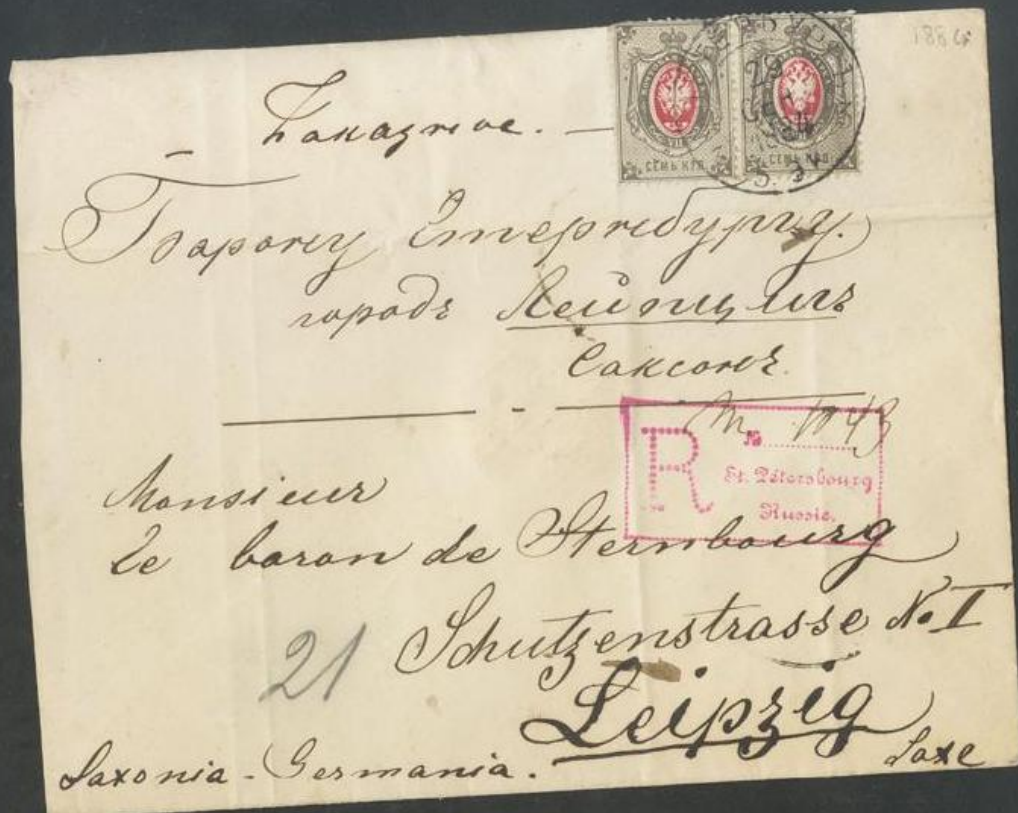 1884
СЕМЬ КОП. СЕМЬ КОП.
Заказное. —
Барону Стернбургу.
городъ Лейпцигъ
Саксонъ.
№ 1043
R №
St. Pétersbourg
Russie.
Monsieur
Le baron de Sternbourg
Schutzenstrasse No. I
21
Leipzig
Saxonia - Germania.
Saxe